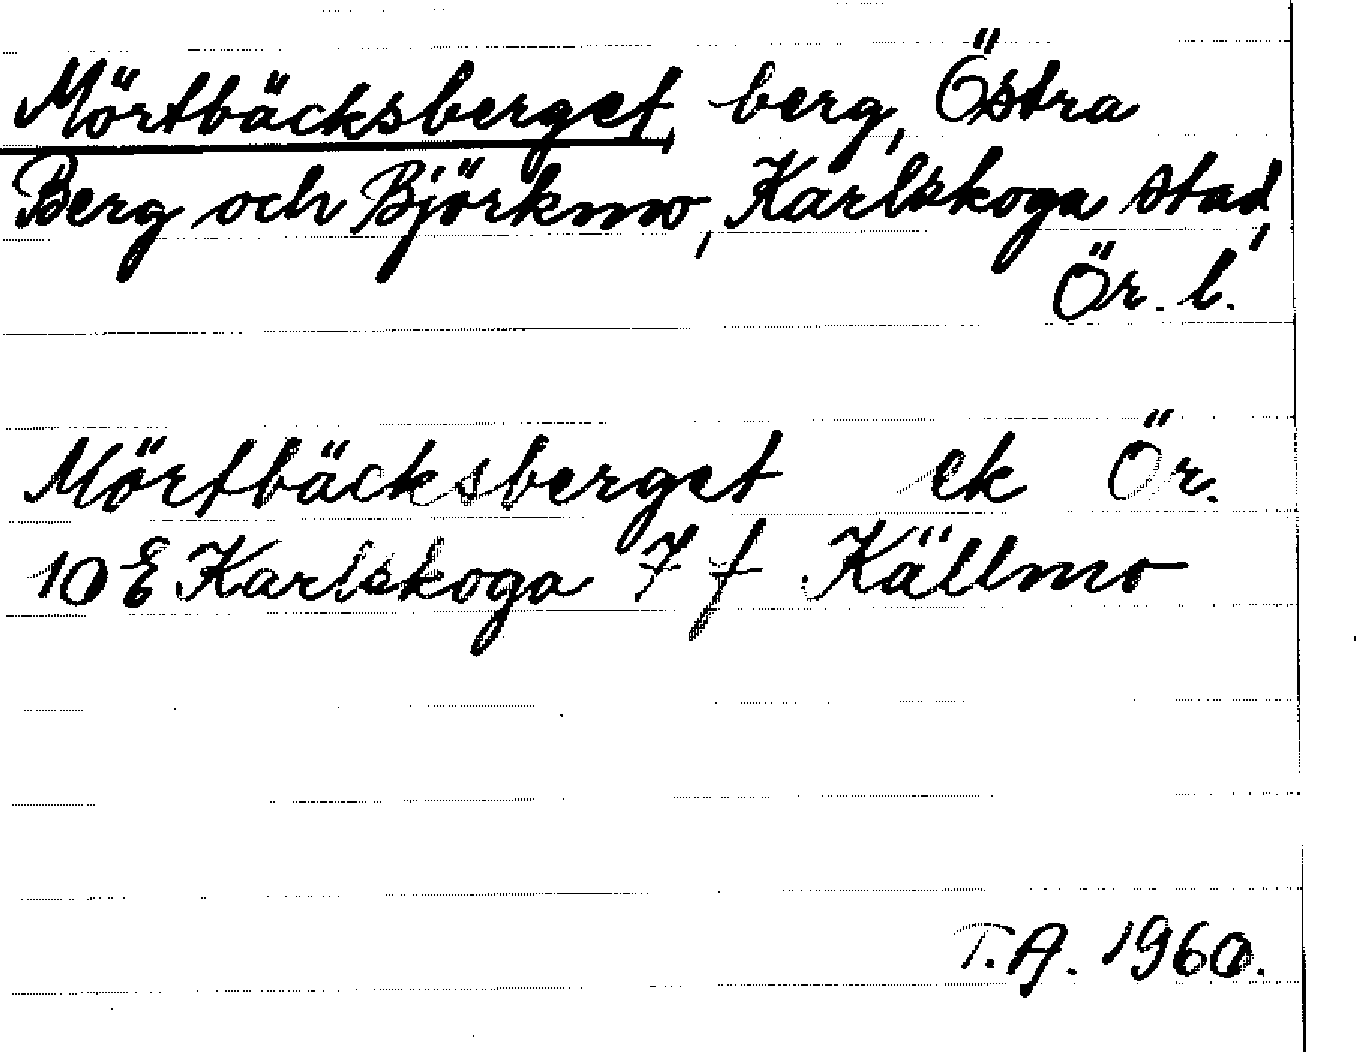 Mörtbäcksberget, berg, Östra
Berg och Björkmo, Karlskoga stad,
Ör. l.
Mörtbäcksberget ek Ör.
10 E Karlskoga 7 f Källmo
T.A. 1960.